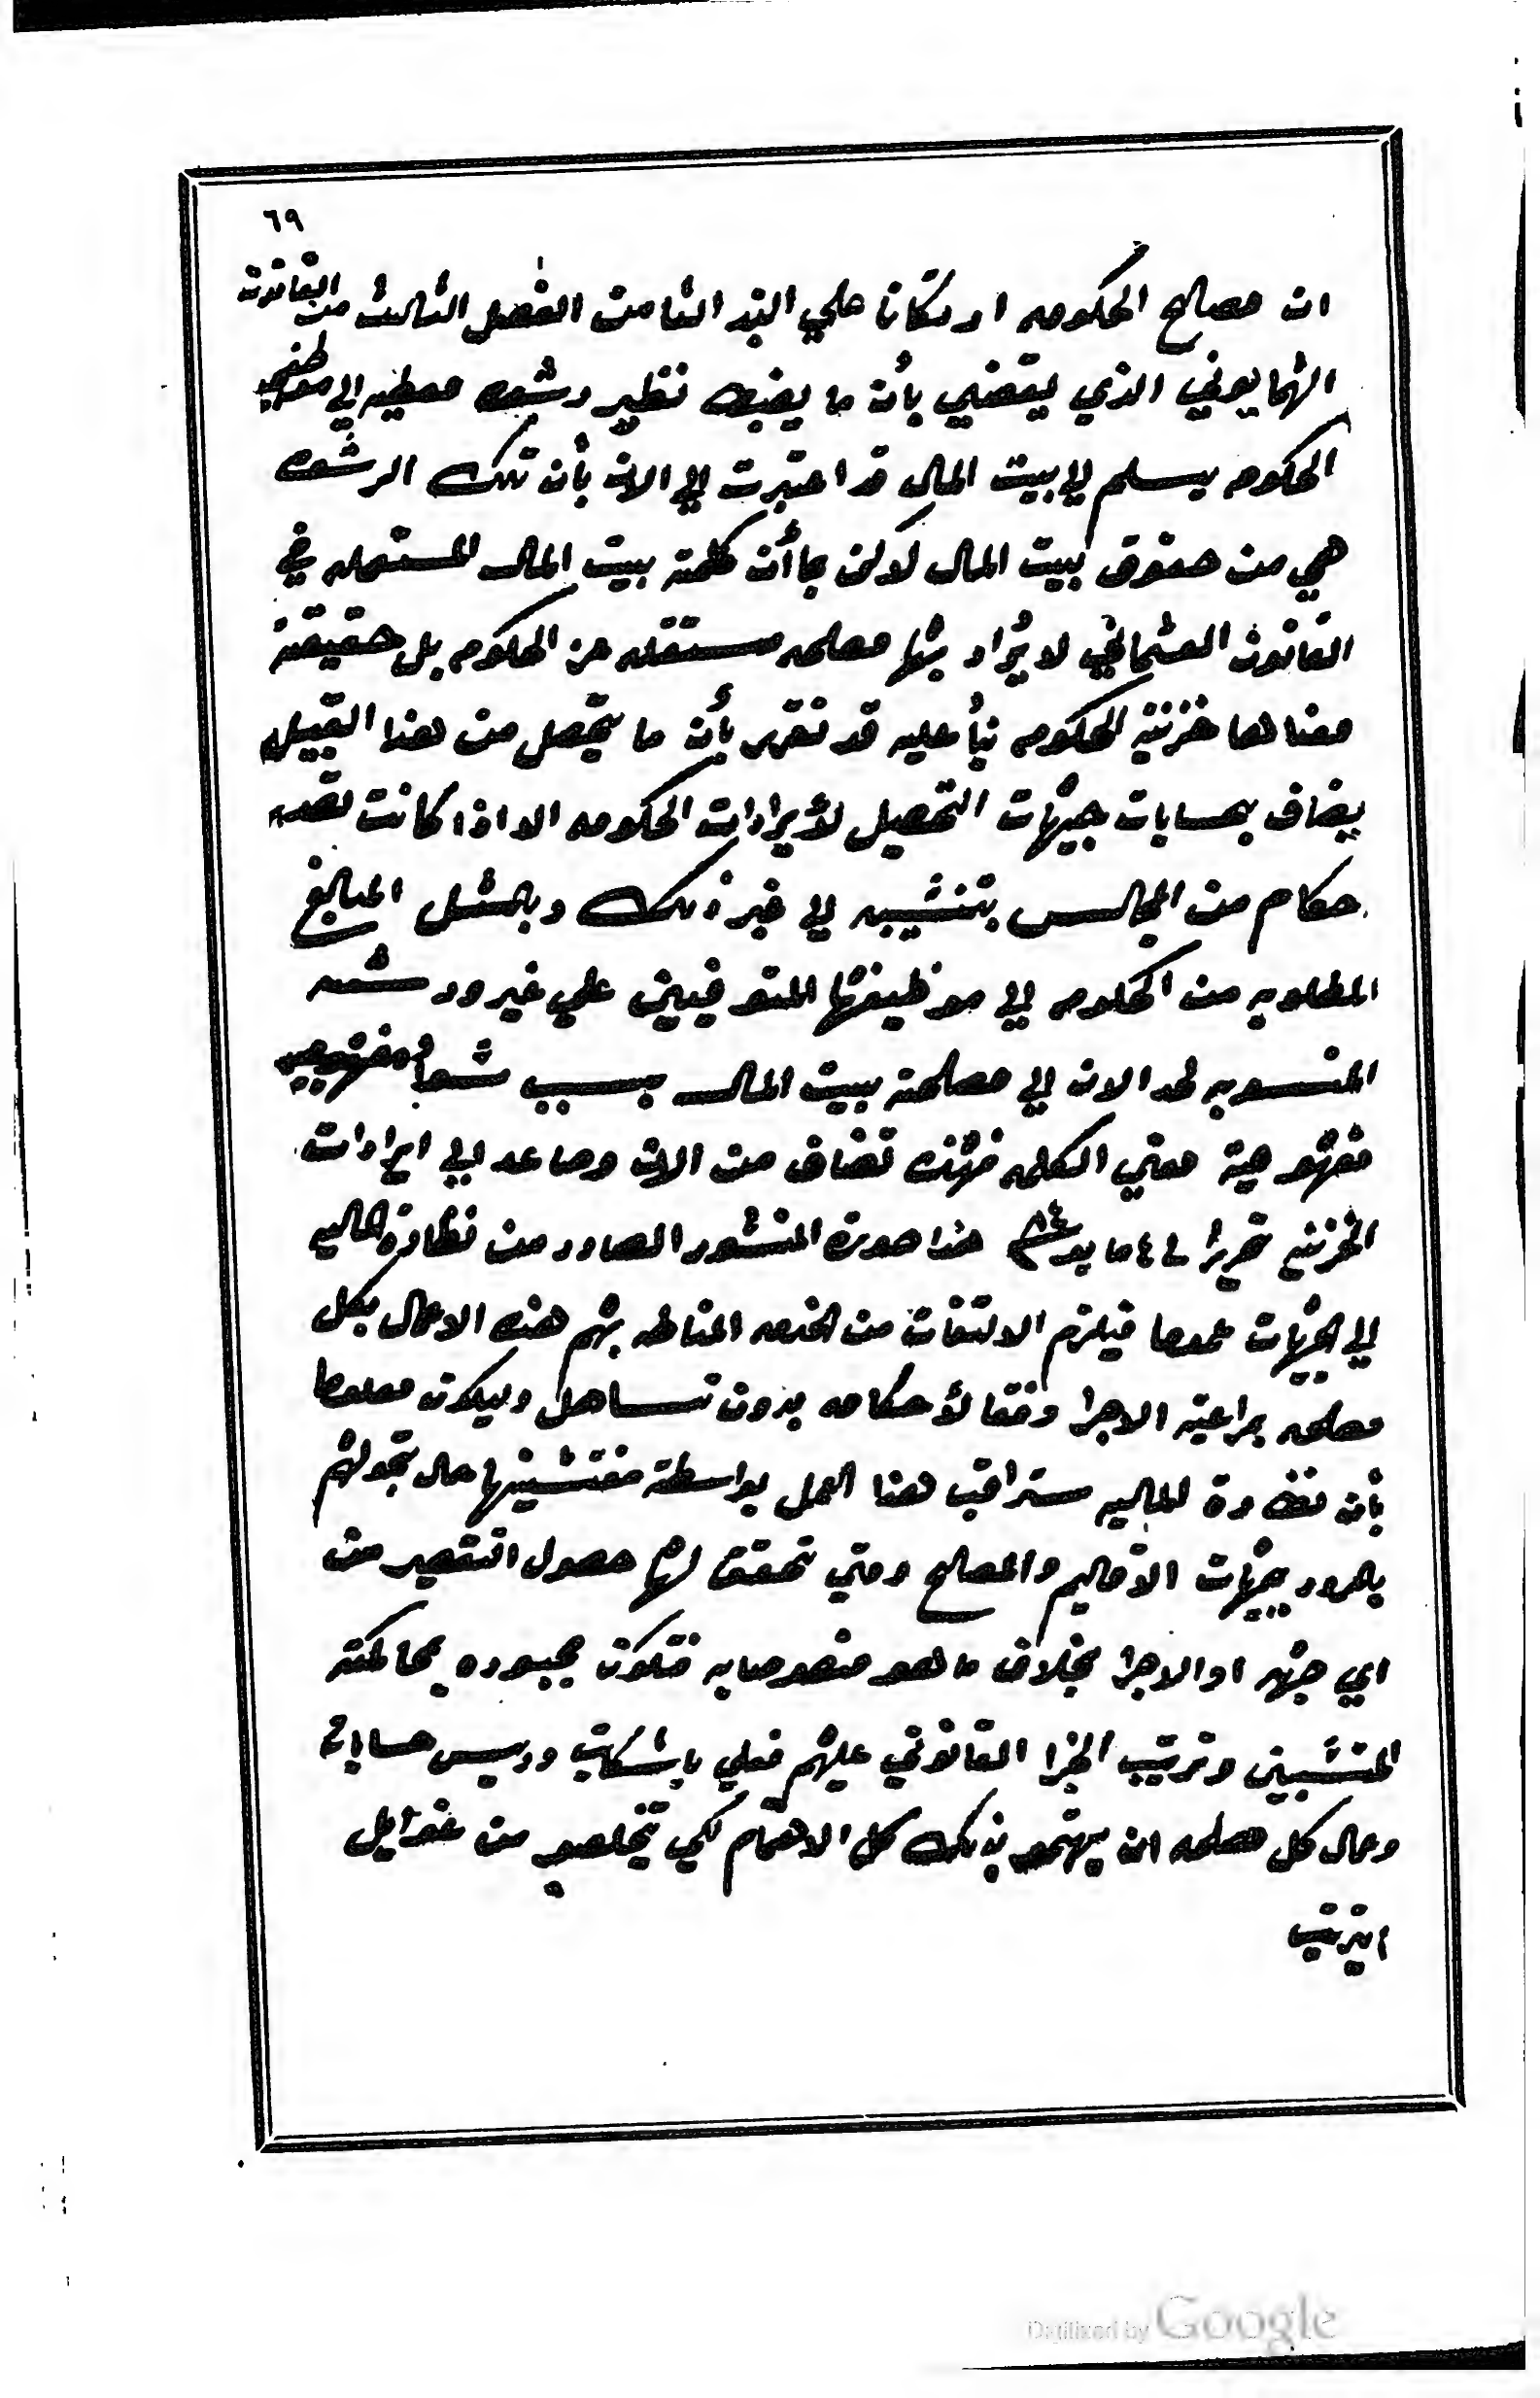 ٦٩
ان مصالح الحكومه اوتكانا علي البند الثامن الفصل الثالث من القانون
الهمايوني الذي يقضي بأن ما يضبط نظير رشوه معطيه الي موظفي
الحكومه يسلم الي بيت المال قد اعتبرت الي الان بأن تلك الرشوه
هي من حقوق بيت المال لاكن بما أن كلمة بيت المال المستعمله في
القانون العثماني لا يُراد بها مصلحه مستقله عن الحكومه بل حقيقة
معناها خزينة الحكومه بنأ عليه قد تقرر بأن ما يتحصل من هذا القبيل
يضاف بحسابات جهات التحصيل لأيرادات الحكومه الا اذا كانت تصدر
حكام من المجالس بتنشيبه الي غير ذلك وبالمثل المبالغ
المطلوبه من الحكومه الي موظيفها المتوفيين علي غير ورشه
المنسوبه لحد الان الي مصلحة بيت المال بسبب
مفهومية معني الكلمه فهذه تضاف من الان وصاعد الي ايرادات
الخزينه تحريرا في ٤ مايو سنة ٨٤ هذا صورة المنشور الصادر من نظارة الماليه
الي الجهات عموما فيلزم الالتفات من الخدمه المناطه بهم هذه الاعمال بكل
مصلحه بمراعية الاجرا وفقا لأحكامه بدون تساهل وليكون معلوما
بأن نظارة الماليه ستراقب هذا العمل بواسطة مفتشينها حال تجولهم
بالمرور بجهات الأقاليم والمصالح ومتي تحقق لها حصول التقصير من
اي جهه او الاجرا بخلاف ما هو منصوصا به فتكون مجبوره بمحاكمة
المتسببين وترتيب الجزا القانوني عليهم فعلي باشكاتب ورييس حسابات
وعمال كل مصلحه ان يهتمو بذلك كل الاهتمام لكي يتخلصو من غوائل
الترتيب
Digitized by Google